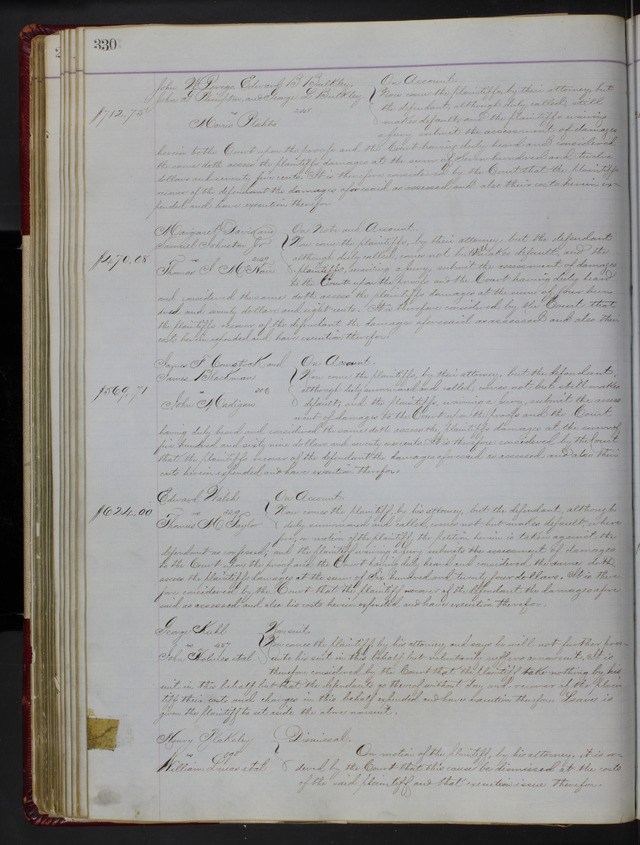 330
On Account.
Now come the plaintiffs, by their attorney, but
the defendant, although duly called, still
makes default, and the plaintiffs waiving
$712.75
vs
a jury submit the assessment of damages
herein to the Court upon the proofs and the Court having duly heard and considered
the same doth assess the plaintiffs damages at the sum of seven hundred and twelve
dollars and seventy five cents. It is therefore considered by the Court that the plaintiffs
recover of the defendant the damages aforesaid as assessed and also their costs herein ex-
pended and have execution therefor.
Margaret Davidson
Samuel Johnston Jr
On Note and Account.
Now come the plaintiffs, by their attorney, but the defendant
$470.08
vs
although duly called, comes not but makes default, and the
plaintiffs, waiving a jury, submit the assessment of damages
to the Court upon the proofs and the Court having duly heard
and considered the same doth assess the plaintiffs damages at the sum of four hun-
dred and seventy dollars and eight cents. It is therefore considered by the Court that
the plaintiffs recover of the defendant the damages aforesaid as assessed and also their
costs herein expended and have execution therefor.
James F Comstock and
James Blackman
On Account.
Now come the plaintiffs, by their attorney, but the defendant,
$569.71
vs
although duly summoned and called, comes not but still makes
John Madigan
default, and the plaintiffs, waiving a jury, submit the assess
ment of damages to the Court upon the proofs and the Court
having duly heard and considered the same doth assess the plaintiffs damages at the sum of
five hundred and sixty nine dollars and seventy one cents. It is therefore considered by the Court
that the plaintiffs recover of the defendant the damages aforesaid as assessed and also their
costs herein expended and have execution therefor.
Edward Walsh
On Account.
$624.00
vs
Now comes the plaintiff, by his attorney, but the defendant, although
Thomas M. Taylor
duly summoned and called, comes not but makes default, where
fore, on motion of the plaintiff, the petition herein is taken against the
defendant as confessed, and the plaintiff waiving a jury submits the assessment of damages
to the Court upon the proofs and the Court having duly heard and considered the same doth
assess the plaintiffs damages at the sum of Six hundred and twenty four dollars. It is there
fore considered by the Court that the plaintiff recover of the defendant the damages afore
said as assessed and also his costs herein expended and have execution therefor.
George Kuhl
Nonsuit.
vs
Now comes the plaintiff by his attorney and says he will not further pros-
John Holmes et al
ecute his suit in this behalf but voluntarily suffers a nonsuit. It is
therefore considered by the Court that the plaintiff take nothing by his
suit in this behalf but that the defendants go thereof without day and recover of the plain
tiff their costs and charges in this behalf expended and have execution therefor. Leave is
given the plaintiff to set aside the above nonsuit.
Henry
Dismissal.
vs
On motion of the plaintiff, by his attorney, it is or
William Lucas et al
dered by the Court that this cause be dismissed at the costs
of the said plaintiff and that execution issue therefor.